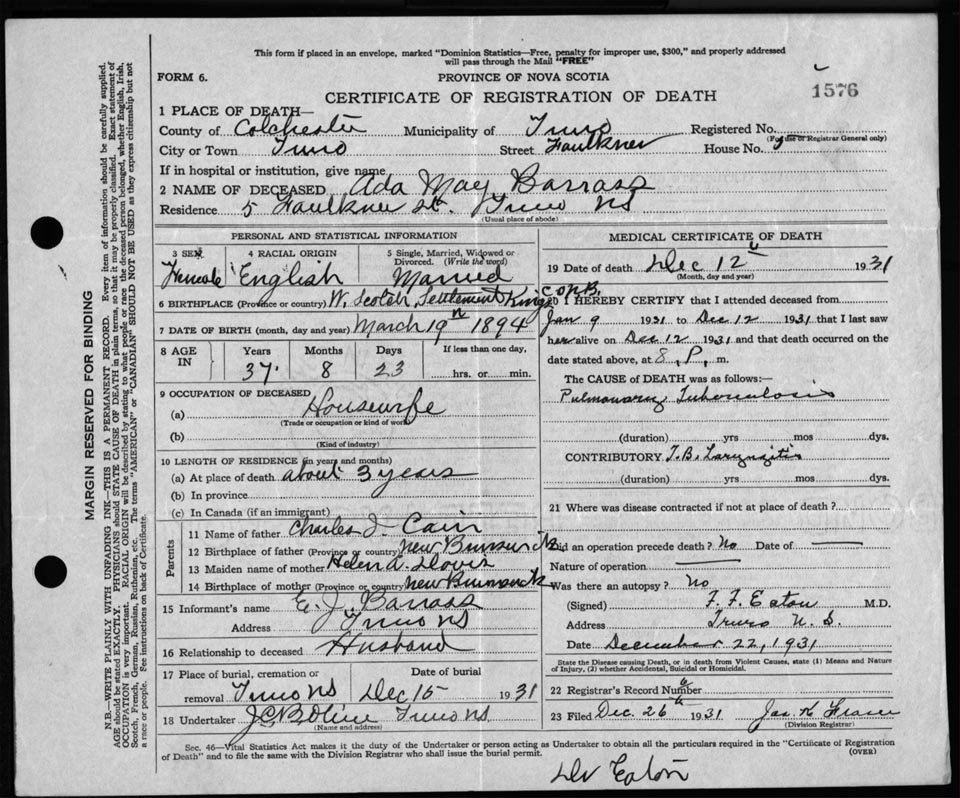 This form if placed in an envelope, marked "Dominion Statistics—Free, penalty for improper use, $300," and properly addressed
will pass through the Mail "FREE"
FORM 6.
PROVINCE OF NOVA SCOTIA
1576
CERTIFICATE OF REGISTRATION OF DEATH
1 PLACE OF DEATH—
County of Colchester Municipality of Truro Registered No.
(For use of Registrar General only)
City or Town Truro Street Faulkner House No. 5
If in hospital or institution, give name
2 NAME OF DECEASED Ada May Barrass
Residence 5 Faulkner St. Truro NS
(Usual place of abode)
PERSONAL AND STATISTICAL INFORMATION
3 SEX Female
4 RACIAL ORIGIN English
5 Single, Married, Widowed or Divorced. (Write the word) Married
6 BIRTHPLACE (Province or country) W. Scotch Settlement Kings Co N.B.
7 DATE OF BIRTH (month, day and year) March 19th 1894
8 AGE IN Years 37 Months 8 Days 23 If less than one day, hrs. or min.
9 OCCUPATION OF DECEASED
(a) Housewife
(Trade or occupation or kind of work)
(b)
(Kind of industry)
10 LENGTH OF RESIDENCE (in years and months)
(a) At place of death about 3 years
(b) In province
(c) In Canada (if an immigrant)
Parents
11 Name of father Charles J. Cain
12 Birthplace of father (Province or country) New Brunswick
13 Maiden name of mother Helen A.
14 Birthplace of mother (Province or country) New Brunswick
15 Informant's name E. J. Barrass
Address Truro NS
16 Relationship to deceased Husband
17 Place of burial, cremation or removal Truro NS Date of burial Dec 15 1931
18 Undertaker Truro NS
(Name and address)
MEDICAL CERTIFICATE OF DEATH
19 Date of death Dec 12 1931
(Month, day and year)
20 I HEREBY CERTIFY that I attended deceased from
Jan 9 1931 to Dec 12 1931 that I last saw
her alive on Dec 12 1931 and that death occurred on the
date stated above, at 8 P. m.
The CAUSE OF DEATH was as follows:—
Pulmonary Tuberculosis
(duration) yrs mos dys.
CONTRIBUTORY T.B. Laryngitis
(duration) yrs mos dys.
21 Where was disease contracted if not at place of death?
Did an operation precede death? No Date of
Nature of operation
Was there an autopsy? No
(Signed) F. F. Eaton M.D.
Address Truro N. S.
Date December 22, 1931
State the Disease causing Death, or in death from Violent Causes, state (1) Means and Nature
of Injury, (2) whether Accidental, Suicidal or Homicidal.
22 Registrar's Record Number
23 Filed Dec. 26th 1931 Jas. K. Fraser
(Division Registrar)
Sec. 46—Vital Statistics Act makes it the duty of the Undertaker or person acting as Undertaker to obtain all the particulars required in the "Certificate of Registration
of Death" and to file the same with the Division Registrar who shall issue the burial permit.
(OVER)
Dr Eaton
MARGIN RESERVED FOR BINDING
N.B.—WRITE PLAINLY WITH UNFADING INK—THIS IS A PERMANENT RECORD. Every item of information should be carefully supplied.
AGE should be stated EXACTLY. PHYSICIANS should STATE CAUSE OF DEATH in plain terms, so that it may be properly classified. Exact statement of
OCCUPATION is very important. RACIAL ORIGIN will be described by stating to what people or race the deceased person belonged, whether English, Irish,
Scotch, French, German, Russian, Ruthenian, etc. The terms "AMERICAN" or "CANADIAN" SHOULD NOT BE USED as they express citizenship but not
a race or people. See instructions on back of Certificate.